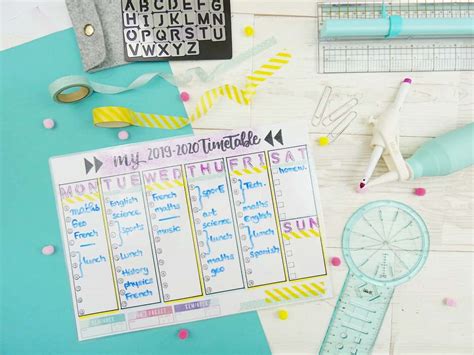 ABCDEFG
HIJKLMN
OPQRSTU
VWXYZ
MY 2019-2020 TIMETABLE
MON TUE WED THU FRI SAT
maths
Geo
French
lunch
English
science
sports
lunch
History
physics
French
French
maths
music
sport
art
science
lunch
maths
geo
Tech.
english
lunch
Spanish
homew.
SUN